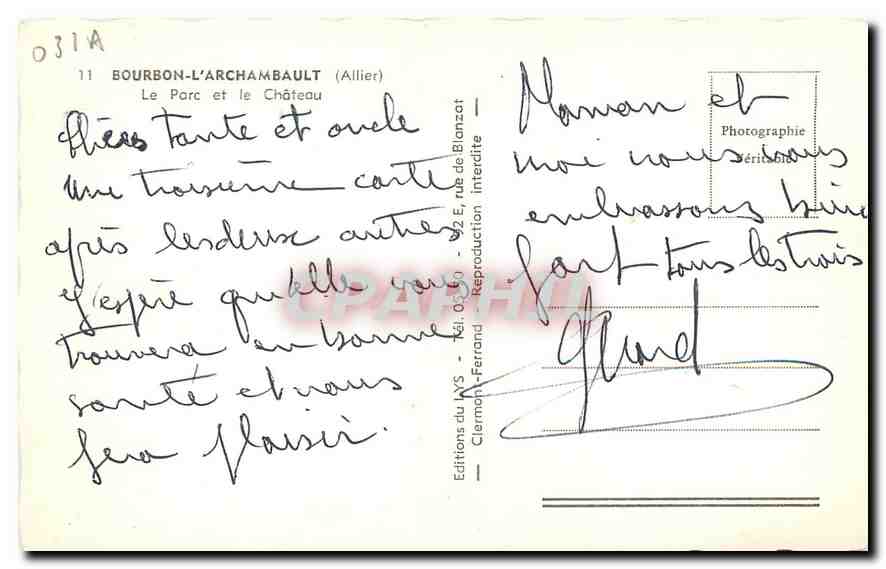 031A
11 BOURBON-L'ARCHAMBAULT (Allier)
Le Parc et le Château
chères Tante et oncle
une troisième carte
après les deux autres
j'espère qu'elle vous
trouvera en bonne
santé et vous
fera plaisir.
Editions du LYS - Tél. 05 - 92 E, rue de Blanzat
— Clermont-Ferrand - Reproduction interdite —
Photographie
Véritable
Maman et
moi nous vous
embrassons bien
fort tous les trois
Gérard
CPAPHIL